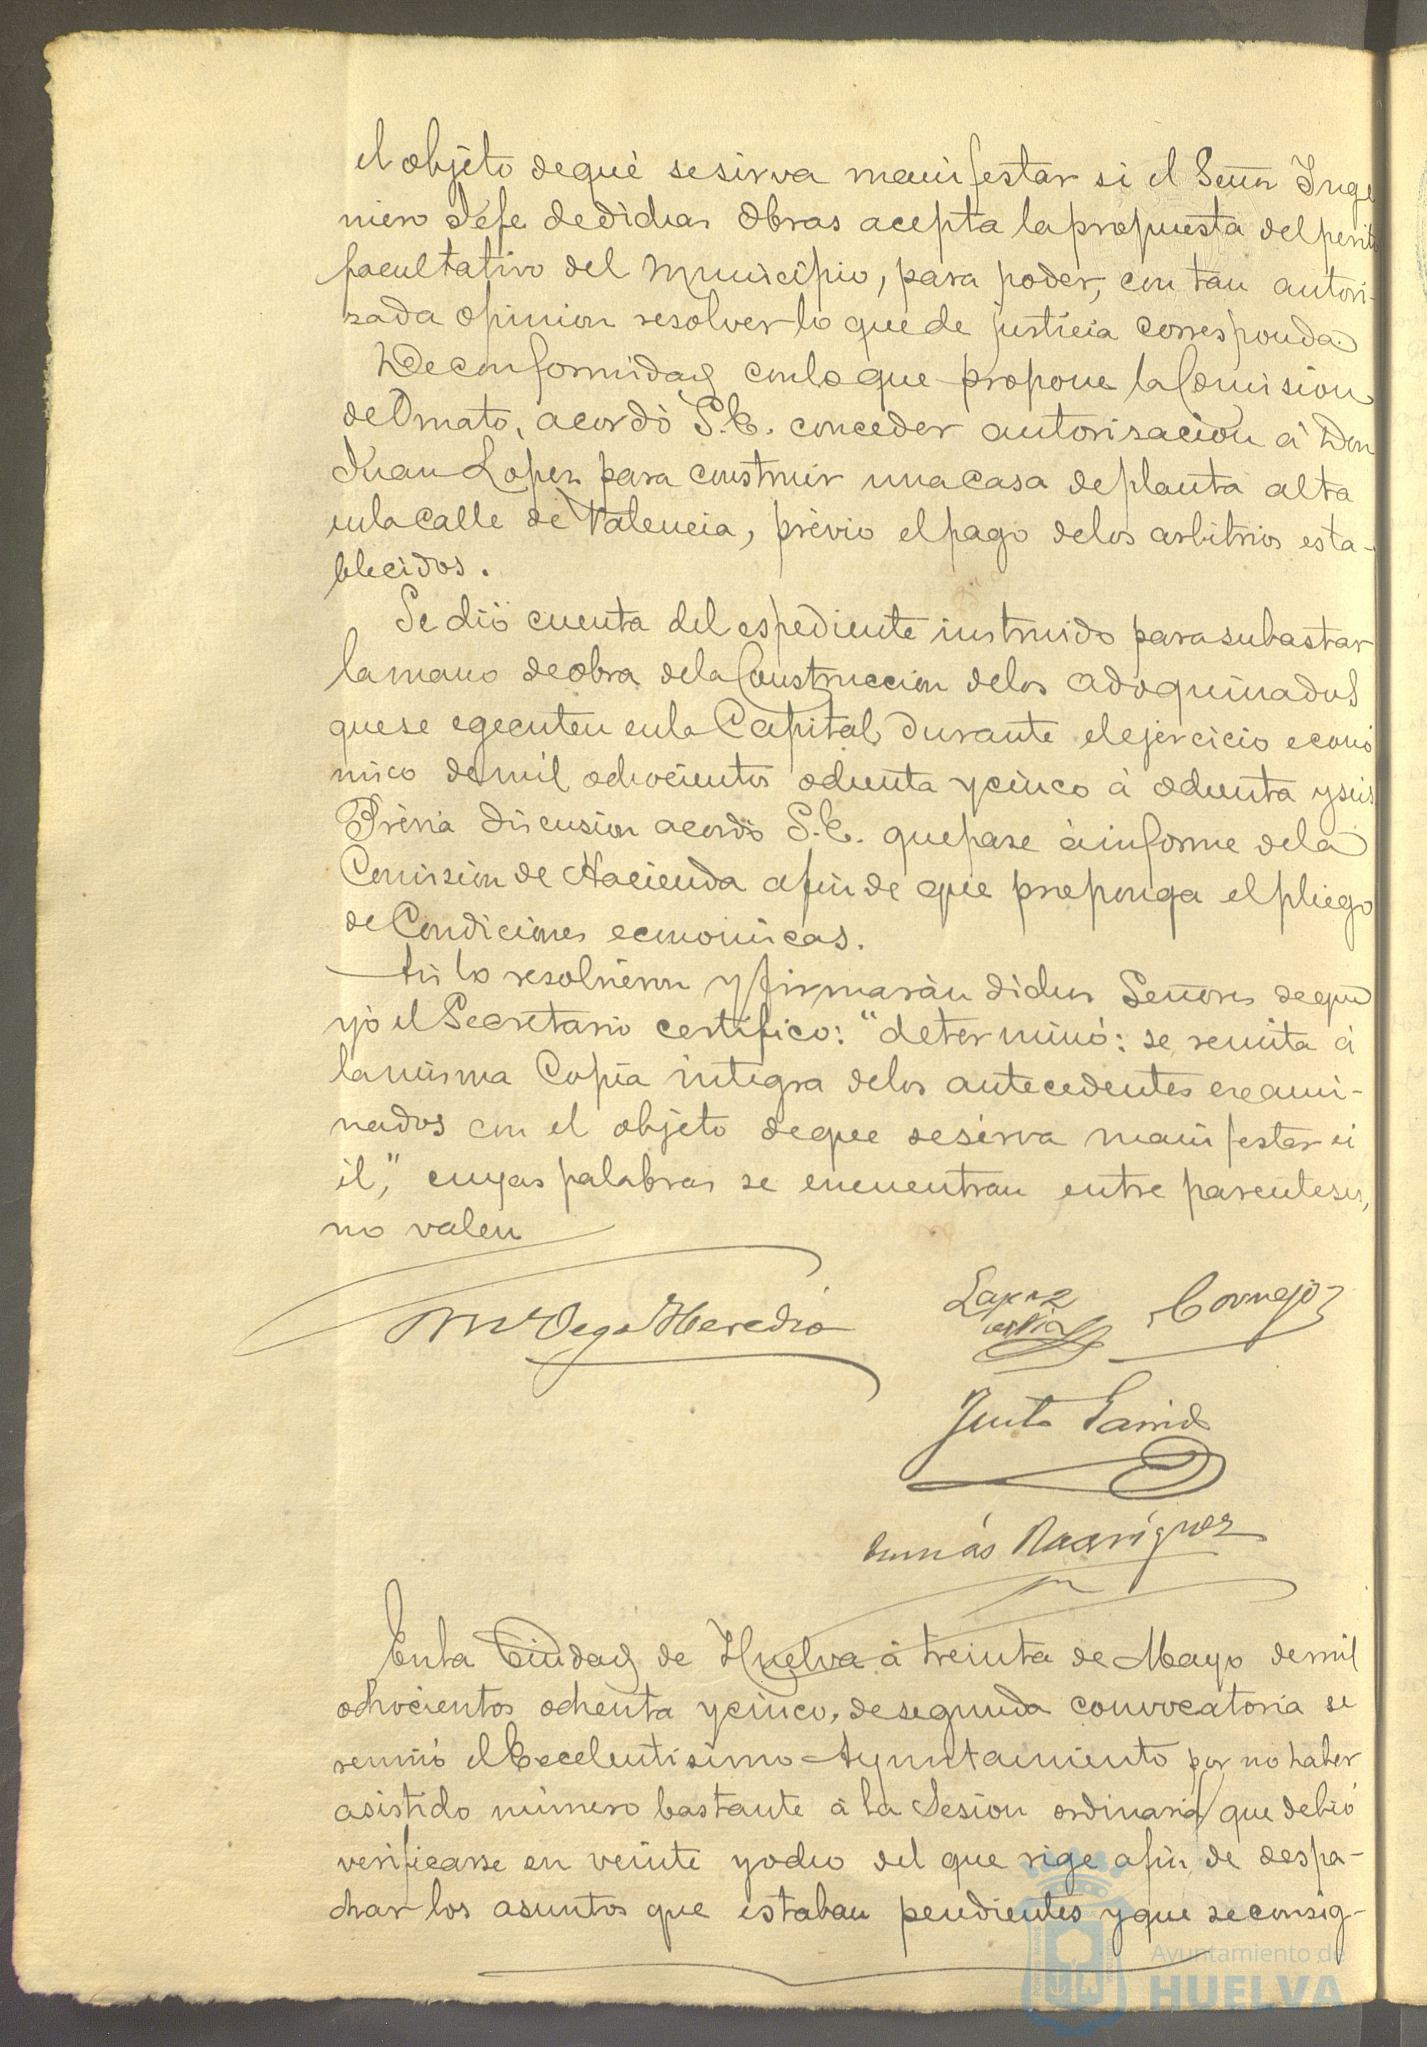 el objeto de qué se sirva manifestar si el Señor Inge
niero Jefe de dichas Obras acepta la propuesta del perito
facultativo del Municipio, para poder, con tan autori-
zada opinion resolver lo que de justicia corresponda.
De conformidad con lo que propone la Comision
de Ornato, acordó S. E. conceder autorisacion á Don
Juan Lopez para construir una casa de planta alta
en la calle de Valencia, prévio el pago de los arbitrios esta-
blecidos.
Se dió cuenta del espediente instruido para subastar
la mano de obra de la Construccion de los adoquinados
que se egecuten en la Capital durante el ejercicio econó
mico de mil ochocientos ochenta y cinco á ochenta y seis
Prévia discusion acordó S. E. que pase á informe de la
Comision de Hacienda afin de que proponga el pliego
de Condiciones economicas.
Asi lo resolvieron y firmarán dichos Señores de que
yó el Secretario certifico: "determinó: se remita á
la misma Copia integra de los antecedentes exami-
nados con el objeto de que se sirva manifestar si
él," cuyas palabras se encuentran entre parentesis,
no valen
Vega Heredia
Lopez Cornejo
Justo Garrido
Tomás Rodríguez
En la Ciudad de Huelva á treinta de Mayo de mil
ochocientos ochenta y cinco, de segunda convocatoria se
reunió el Excelentisimo Ayuntamiento por no haber
asistido número bastante á la Sesion ordinaria que debió
verificarse en veinte y ocho del que rige afin de despa-
char los asuntos que estaban pendientes y que se consig-
Ayuntamiento de
HUELVA